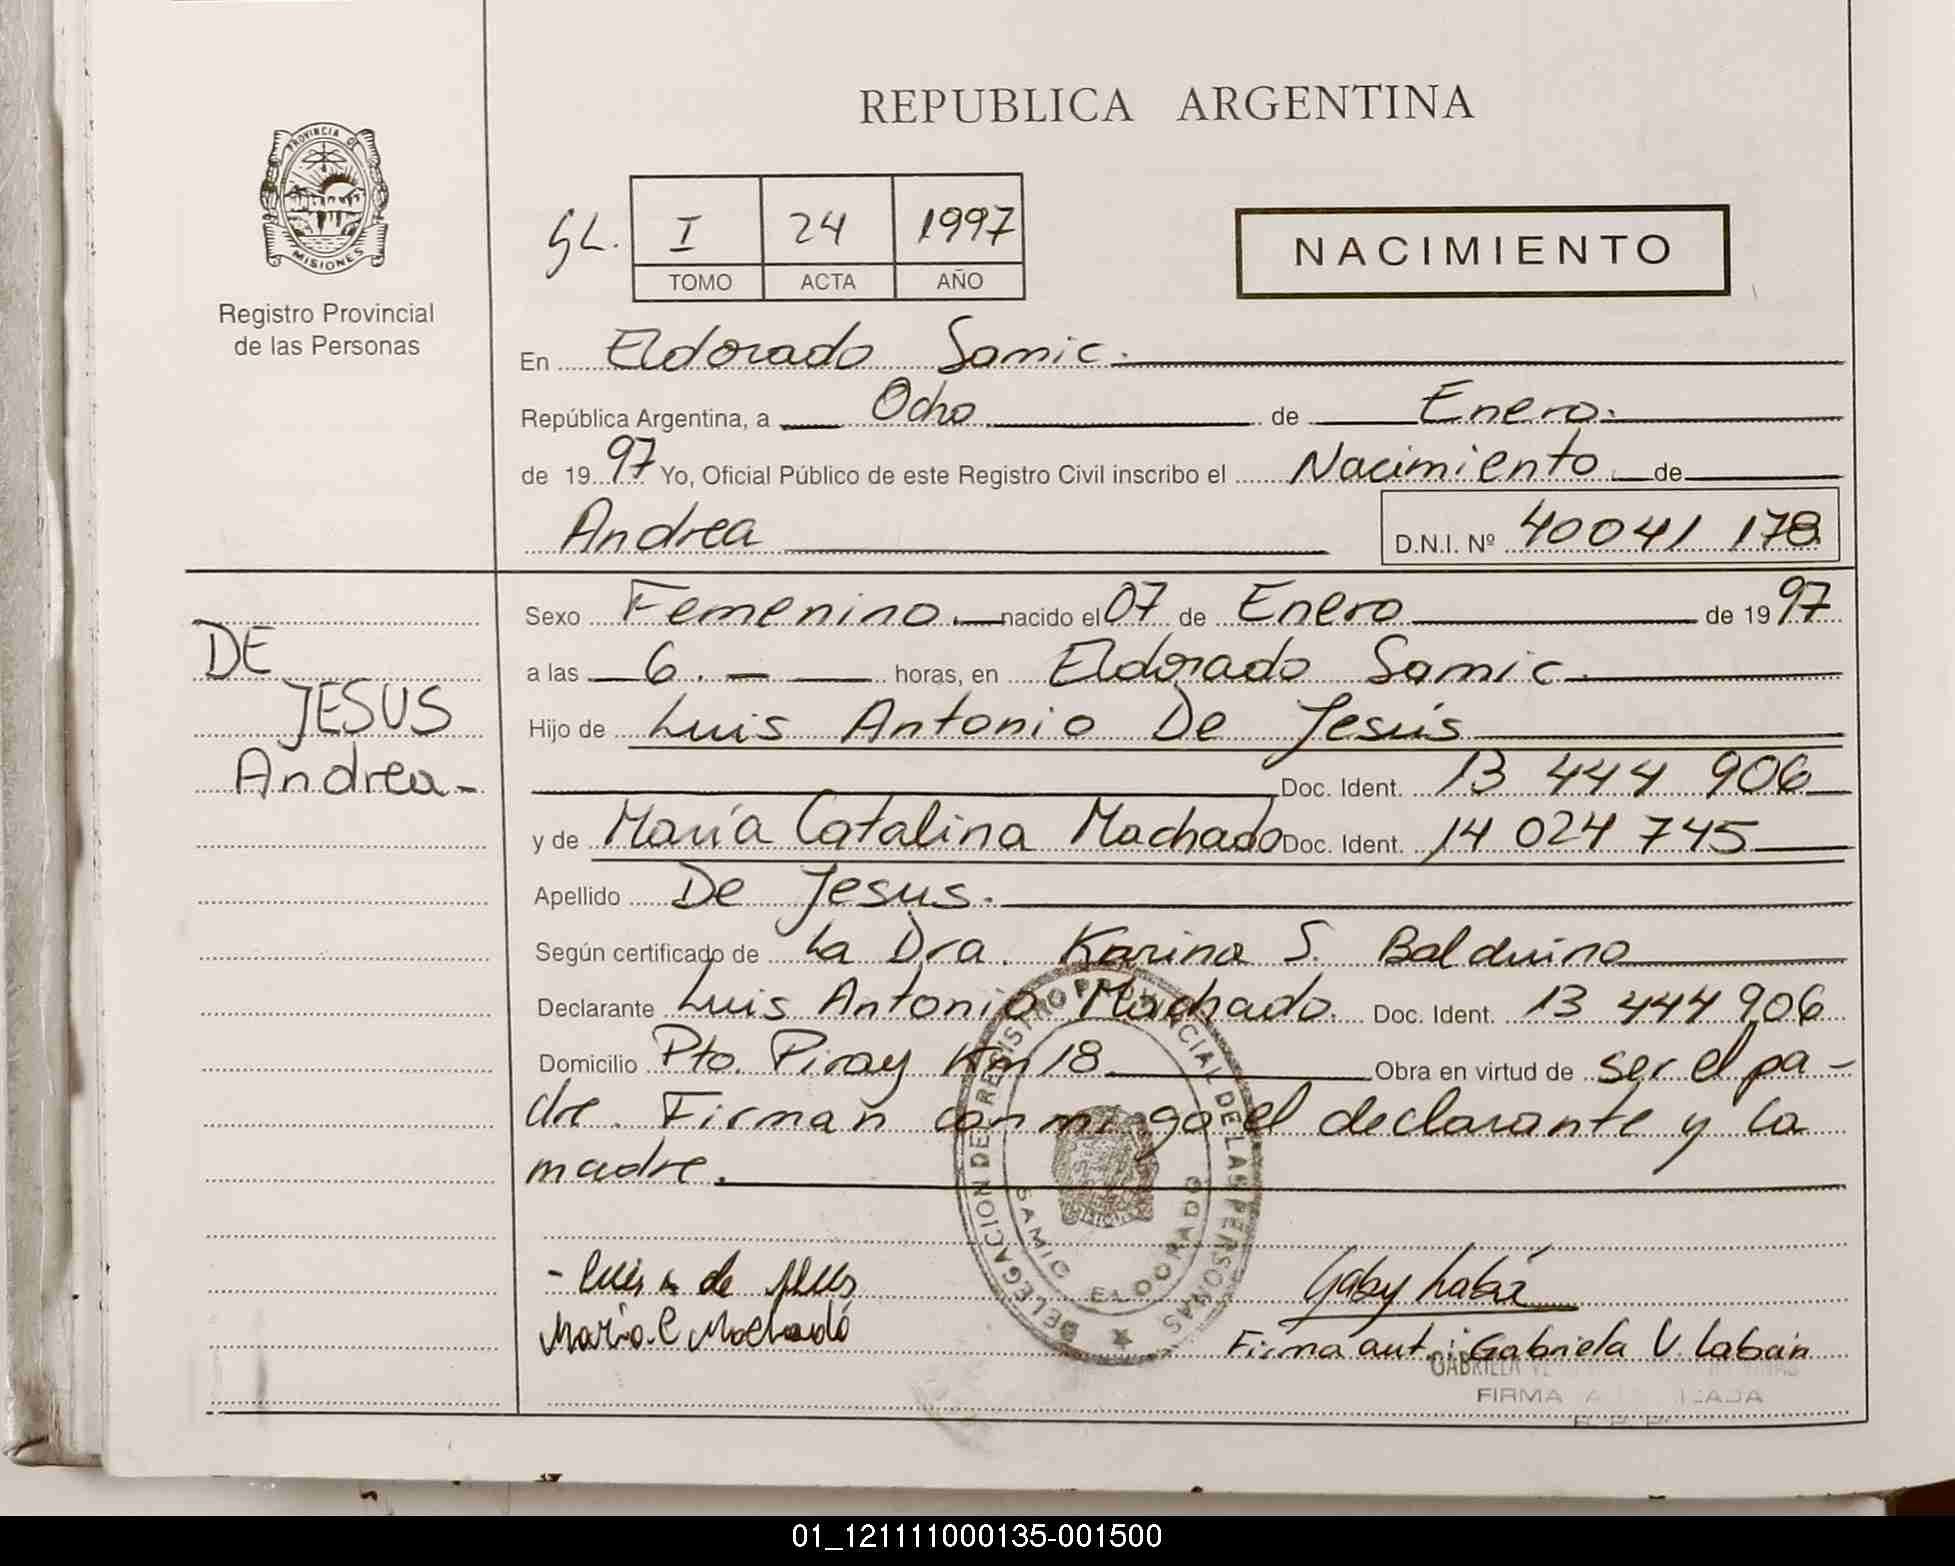 REPUBLICA ARGENTINA
PROVINCIA DE
MISIONES
Registro Provincial
de las Personas
GL. I 24 1997
TOMO ACTA AÑO
NACIMIENTO
En Eldorado Samic.
República Argentina, a Ocho de Enero.
de 1997 Yo, Oficial Público de este Registro Civil inscribo el Nacimiento de
Andrea D.N.I. Nº 40041 178
DE
JESUS
Andrea-
Sexo Femenino. nacido el 07 de Enero de 1997
a las 6. horas, en Eldorado Samic.
Hijo de Luis Antonio De Jesús
Doc. Ident. 13 444 906
y de María Catalina Machado Doc. Ident. 14 024 745
Apellido De Jesus.
Según certificado de La Dra. Karina S. Balduino
Declarante Luis Antonio Machado. Doc. Ident. 13 444 906
Domicilio Pto. Piray Km 18 Obra en virtud de ser el pa-
dre. Firman conmigo el declarante y la
madre.
DELEGACION DE REGISTRO PROVINCIAL DE LAS PERSONAS
SAMIC ELDORADO
- Luis A de Jesus
Maria C Machado
Gaby Labá
Firma aut.: Gabriela V Labán
GABRIELA
FIRMA
01_121111000135-001500